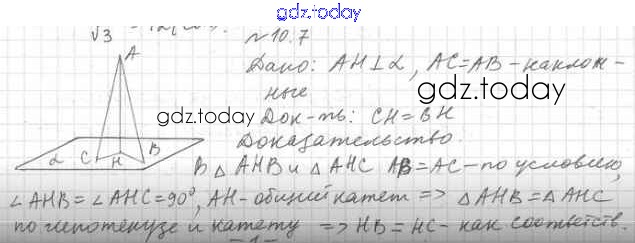 gdz.today
√3
N10.7
A
Дано: AH⊥α, AC=AB-наклон-
ные
gdz.today
gdz.today
Док-ть: CH=BH
Доказательство.
α C H B
В △ AHB и △ AHC AB=AC-по условию,
∠AHB=∠AHC=90°, AH-общий катет => △AHB=△AHC
по гипотенузе и катету => HB=HC- как соответств.